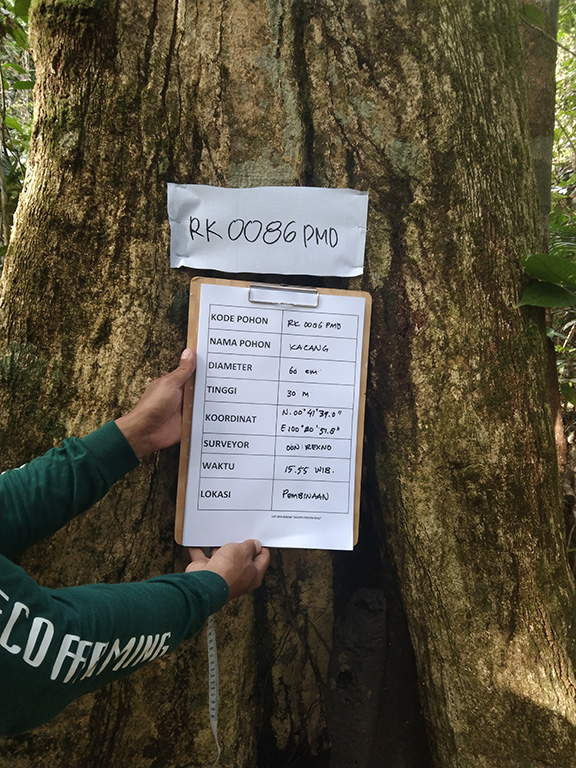 RK 0086 PMD
KODE POHON RK 0086 PMD
NAMA POHON KACANG
DIAMETER 60 cm
TINGGI 30 M
KOORDINAT N. 00° 41' 39.0"
E 100° 20' 51.8"
SURVEYOR DON : REXNO
WAKTU 15.55 WIB.
LOKASI PEMBINAAN
ECO FFERMING